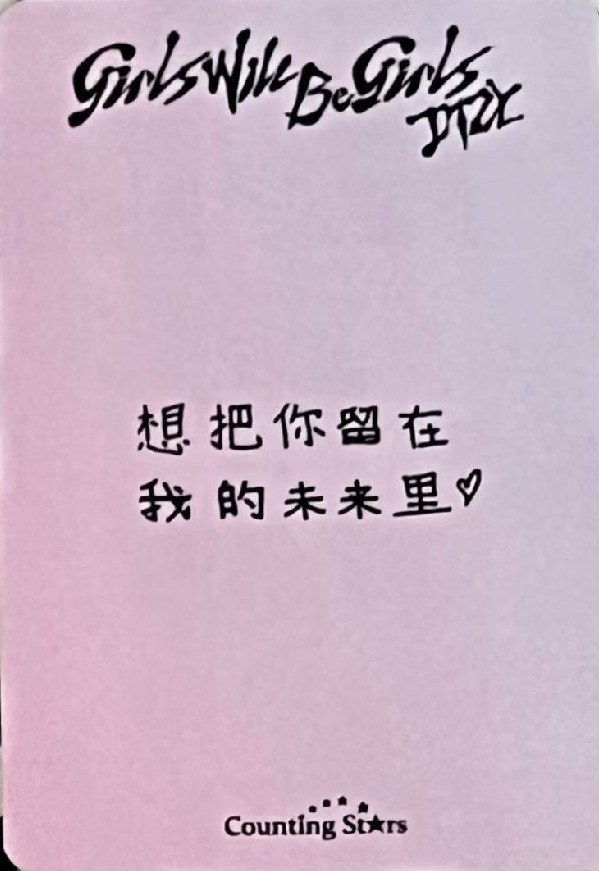 Girls Will Be Girls
ITZY
想把你留在
我的未来里♡
Counting St★rs